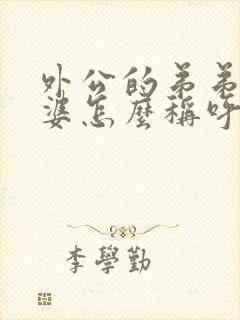 外公的弟弟
婆怎麼稱呼
李學勤